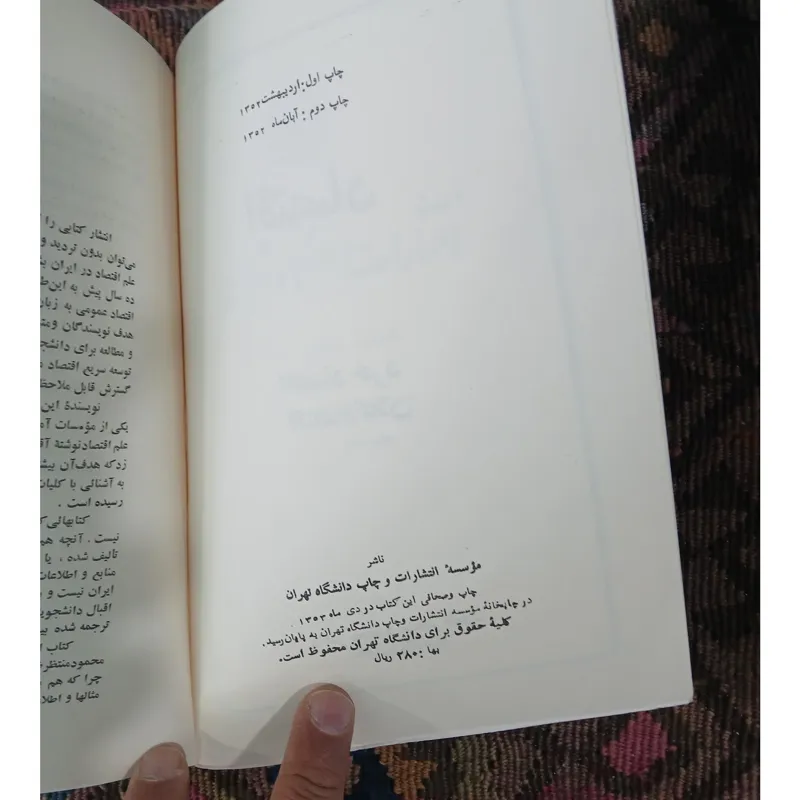 چاپ اول: اردیبهشت ۱۳۵۲
چاپ دوم: آبان‌ماه ۱۳۵۲
ناشر
مؤسسهٔ انتشارات و چاپ دانشگاه تهران
چاپ وصحافی این کتاب در دی ماه ۱۳۵۳
در چاپخانهٔ مؤسسه انتشارات وچاپ دانشگاه تهران به پایان رسید.
کلیهٔ حقوق برای دانشگاه تهران محفوظ است.
بها: ۲۸۰ ریال
انتشار کتابی را
می‌توان بدون تردید و
علم اقتصاد در ایران
ده سال پیش به این
اقتصاد عمومی به زبان
هدف نویسندگان
و مطالعه برای
توسعه سریع اقتصاد
گسترش قابل
نویسندهٔ این
یکی از مؤسسات
علم اقتصادنوشتهٔ
زدکه هدف‌آن
به آشنائی با کلیات
رسیده است.
کتابهائی
نیست. آنچه هم
تألیف شده، یا
منابع و اطلاعات
ایران نیست و
اقبال
ترجمه شده
کتاب
چرا که هم
مثالها و